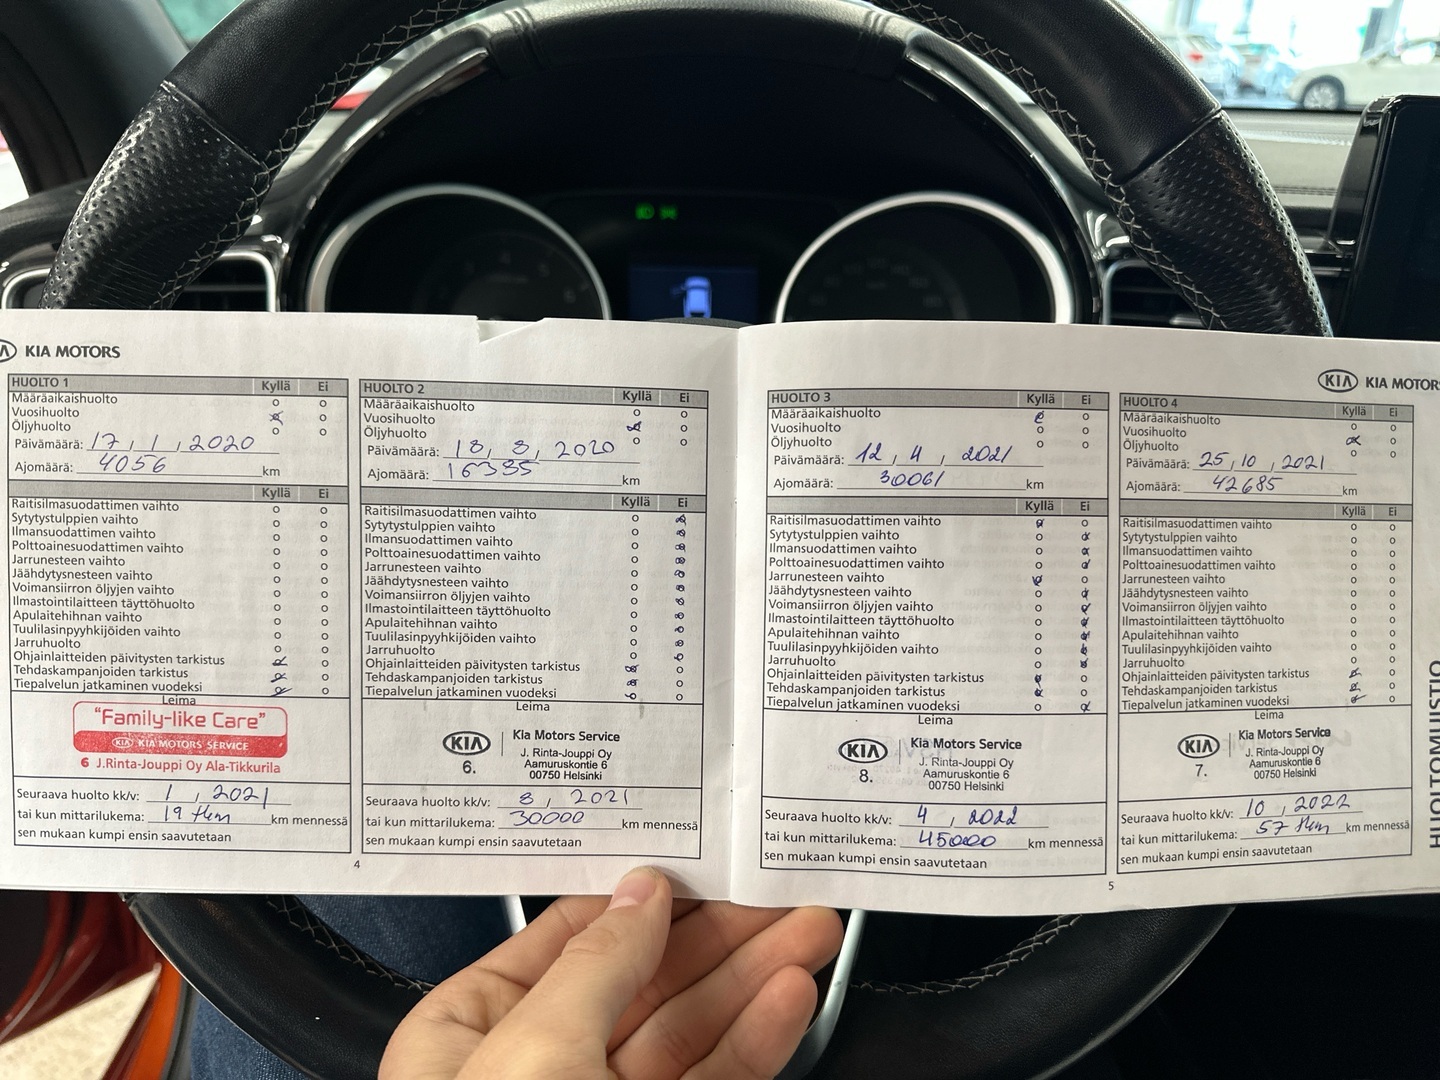 KIA MOTORS
HUOLTO 1 Kyllä Ei
Määräaikaishuolto
Vuosihuolto
Öljyhuolto
Päivämäärä: 17, 1, 2020
Ajomäärä: 4056 km
Kyllä Ei
Raitisilmasuodattimen vaihto
Sytytystulppien vaihto
Ilmansuodattimen vaihto
Polttoainesuodattimen vaihto
Jarrunesteen vaihto
Jäähdytysnesteen vaihto
Voimansiirron öljyjen vaihto
Ilmastointilaitteen täyttöhuolto
Apulaitehihnan vaihto
Tuulilasinpyyhkijöiden vaihto
Jarruhuolto
Ohjainlaitteiden päivitysten tarkistus
Tehdaskampanjoiden tarkistus
Tiepalvelun jatkaminen vuodeksi
Leima
"Family-like Care"
KIA KIA MOTORS SERVICE
6 J.Rinta-Jouppi Oy Ala-Tikkurila
Seuraava huolto kk/v: 1, 2021
tai kun mittarilukema: 19 tkm km mennessä
sen mukaan kumpi ensin saavutetaan
4
HUOLTO 2 Kyllä Ei
Määräaikaishuolto
Vuosihuolto
Öljyhuolto
Päivämäärä: 18, 8, 2020
Ajomäärä: 16385 km
Kyllä Ei
Raitisilmasuodattimen vaihto
Sytytystulppien vaihto
Ilmansuodattimen vaihto
Polttoainesuodattimen vaihto
Jarrunesteen vaihto
Jäähdytysnesteen vaihto
Voimansiirron öljyjen vaihto
Ilmastointilaitteen täyttöhuolto
Apulaitehihnan vaihto
Tuulilasinpyyhkijöiden vaihto
Jarruhuolto
Ohjainlaitteiden päivitysten tarkistus
Tehdaskampanjoiden tarkistus
Tiepalvelun jatkaminen vuodeksi
Leima
KIA Kia Motors Service
6. J. Rinta-Jouppi Oy
Aamuruskontie 6
00750 Helsinki
Seuraava huolto kk/v: 8, 2021
tai kun mittarilukema: 30000 km mennessä
sen mukaan kumpi ensin saavutetaan
HUOLTO 3 Kyllä Ei
Määräaikaishuolto
Vuosihuolto
Öljyhuolto
Päivämäärä: 12, 4, 2021
Ajomäärä: 30061 km
Kyllä Ei
Raitisilmasuodattimen vaihto
Sytytystulppien vaihto
Ilmansuodattimen vaihto
Polttoainesuodattimen vaihto
Jarrunesteen vaihto
Jäähdytysnesteen vaihto
Voimansiirron öljyjen vaihto
Ilmastointilaitteen täyttöhuolto
Apulaitehihnan vaihto
Tuulilasinpyyhkijöiden vaihto
Jarruhuolto
Ohjainlaitteiden päivitysten tarkistus
Tehdaskampanjoiden tarkistus
Tiepalvelun jatkaminen vuodeksi
Leima
KIA Kia Motors Service
8. J. Rinta-Jouppi Oy
Aamuruskontie 6
00750 Helsinki
Seuraava huolto kk/v: 4, 2022
tai kun mittarilukema: 45000 km mennessä
sen mukaan kumpi ensin saavutetaan
5
KIA KIA MOTORS
HUOLTO 4 Kyllä Ei
Määräaikaishuolto
Vuosihuolto
Öljyhuolto
Päivämäärä: 25, 10, 2021
Ajomäärä: 42685 km
Kyllä Ei
Raitisilmasuodattimen vaihto
Sytytystulppien vaihto
Ilmansuodattimen vaihto
Polttoainesuodattimen vaihto
Jarrunesteen vaihto
Jäähdytysnesteen vaihto
Voimansiirron öljyjen vaihto
Ilmastointilaitteen täyttöhuolto
Apulaitehihnan vaihto
Tuulilasinpyyhkijöiden vaihto
Jarruhuolto
Ohjainlaitteiden päivitysten tarkistus
Tehdaskampanjoiden tarkistus
Tiepalvelun jatkaminen vuodeksi
Leima
KIA Kia Motors Service
7. J. Rinta-Jouppi Oy
Aamuruskontie 6
00750 Helsinki
Seuraava huolto kk/v: 10, 2022
tai kun mittarilukema: 57 tkm km mennessä
sen mukaan kumpi ensin saavutetaan
HUOLTOMUISTIO